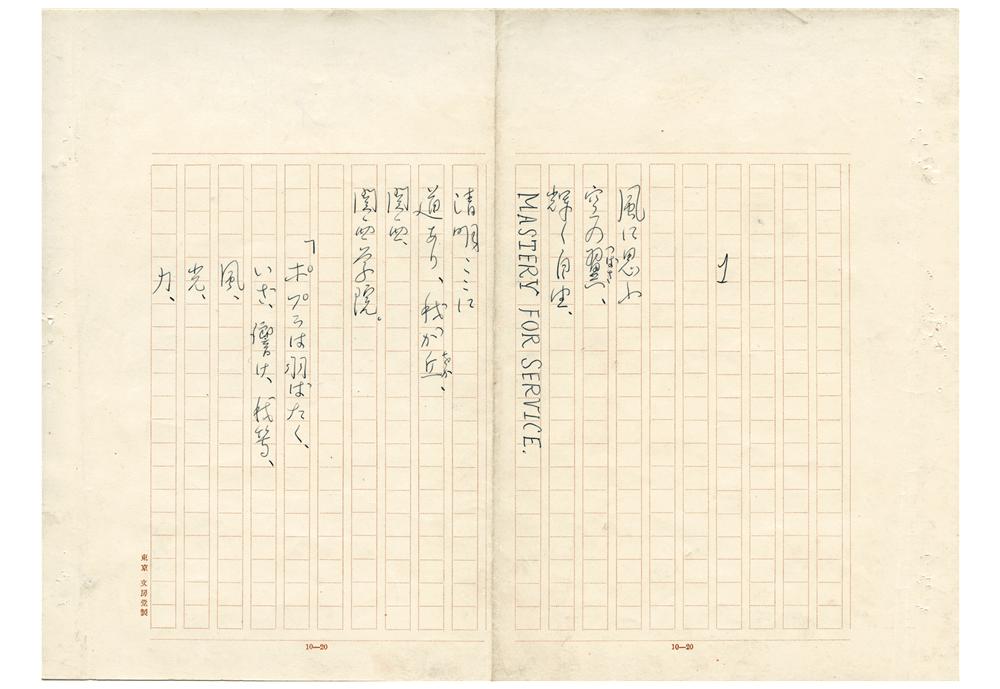 1
風に思ふ
空の翼、
つばさ
輝く自由、
MASTERY FOR SERVICE.
清明ここに
道あり、我が丘、
をか
関西、
関西学院。
「ポプラは羽ばたく、
いざ、響け、我等、
風、
光、
力、
東京 文房堂製
10—20
10—20